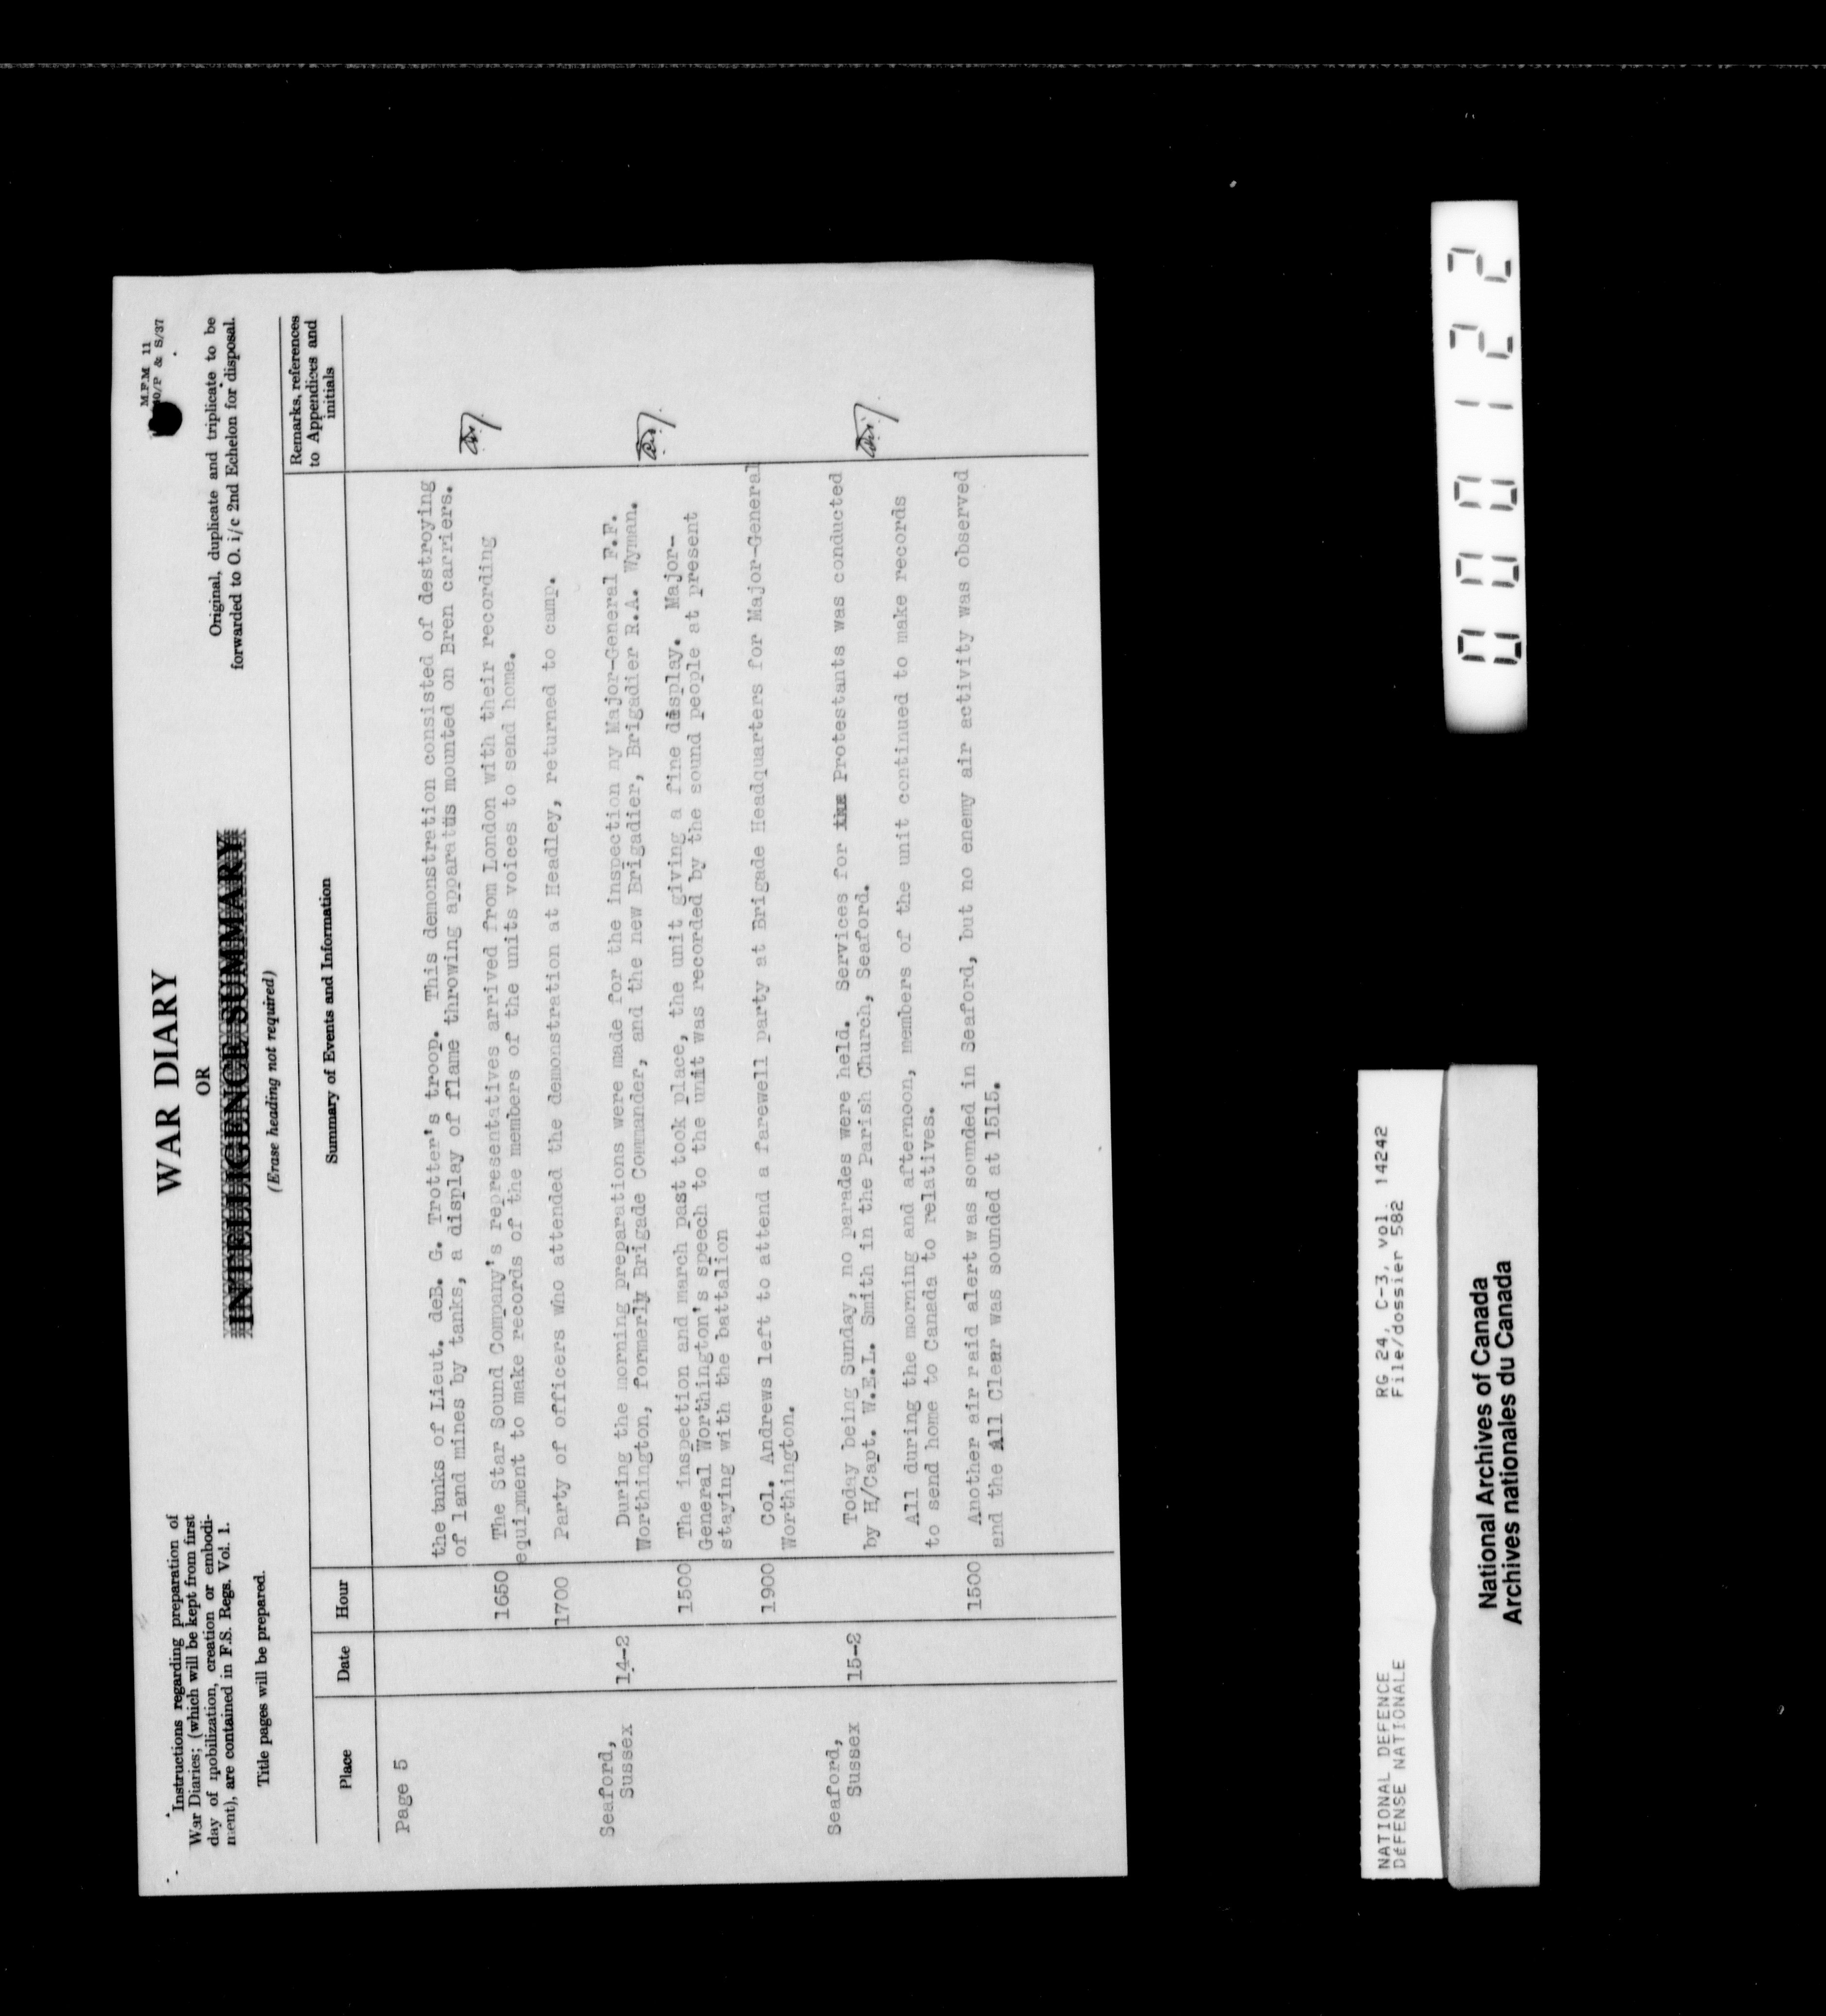 Instructions regarding preparation of
War Diaries; (which will be kept from first
day of mobilization, creation or embodi-
ment), are contained in F.S. Regs. Vol. 1.
Title pages will be prepared.
WAR DIARY
OR
INTELLIGENCE SUMMARY
(Erase heading not required)
M.F.M 11
/P & S/37
Original, duplicate and triplicate to be
forwarded to O. i/c 2nd Echelon for disposal.
Place Date Hour Summary of Events and Information Remarks, references
to Appendices and
initials
Page 5
the tanks of Lieut. deB. G. Trotter's troop. This demonstration consisted of destroying
of land mines by tanks, a display of flame throwing apparatus mounted on Bren carriers.
1650 The Star Sound Company's representatives arrived from London with their recording
equipment to make records of the members of the units voices to send home.
1700 Party of officers who attended the demonstration at Headley, returned to camp.
Seaford, 14-2 During the morning preparations were made for the inspection ny Major-General F.F.
Sussex Worthington, formerly Brigade Commander, and the new Brigadier, Brigadier R.A. Wyman.
1500 The inspection and march past took place, the unit giving a fine display. Major-
General Worthington's speech to the unit was recorded by the sound people at present
staying with the battalion
1900 Col. Andrews left to attend a farewell party at Brigade Headquarters for Major-General
Worthington.
Seaford, 15-2 Today being Sunday, no parades were held. Services for the Protestants was conducted
Sussex by H/Capt. W.E.L. Smith in the Parish Church, Seaford.
All during the morning and afternoon, members of the unit continued to make records
to send home to Canada to relatives.
1500 Another air raid alert was sounded in Seaford, but no enemy air activity was observed
and the All Clear was sounded at 1515.
000122
NATIONAL DEFENCE RG 24, C-3, vol. 14242
DéFENSE NATIONALE File/dossier 582
National Archives of Canada
Archives nationales du Canada